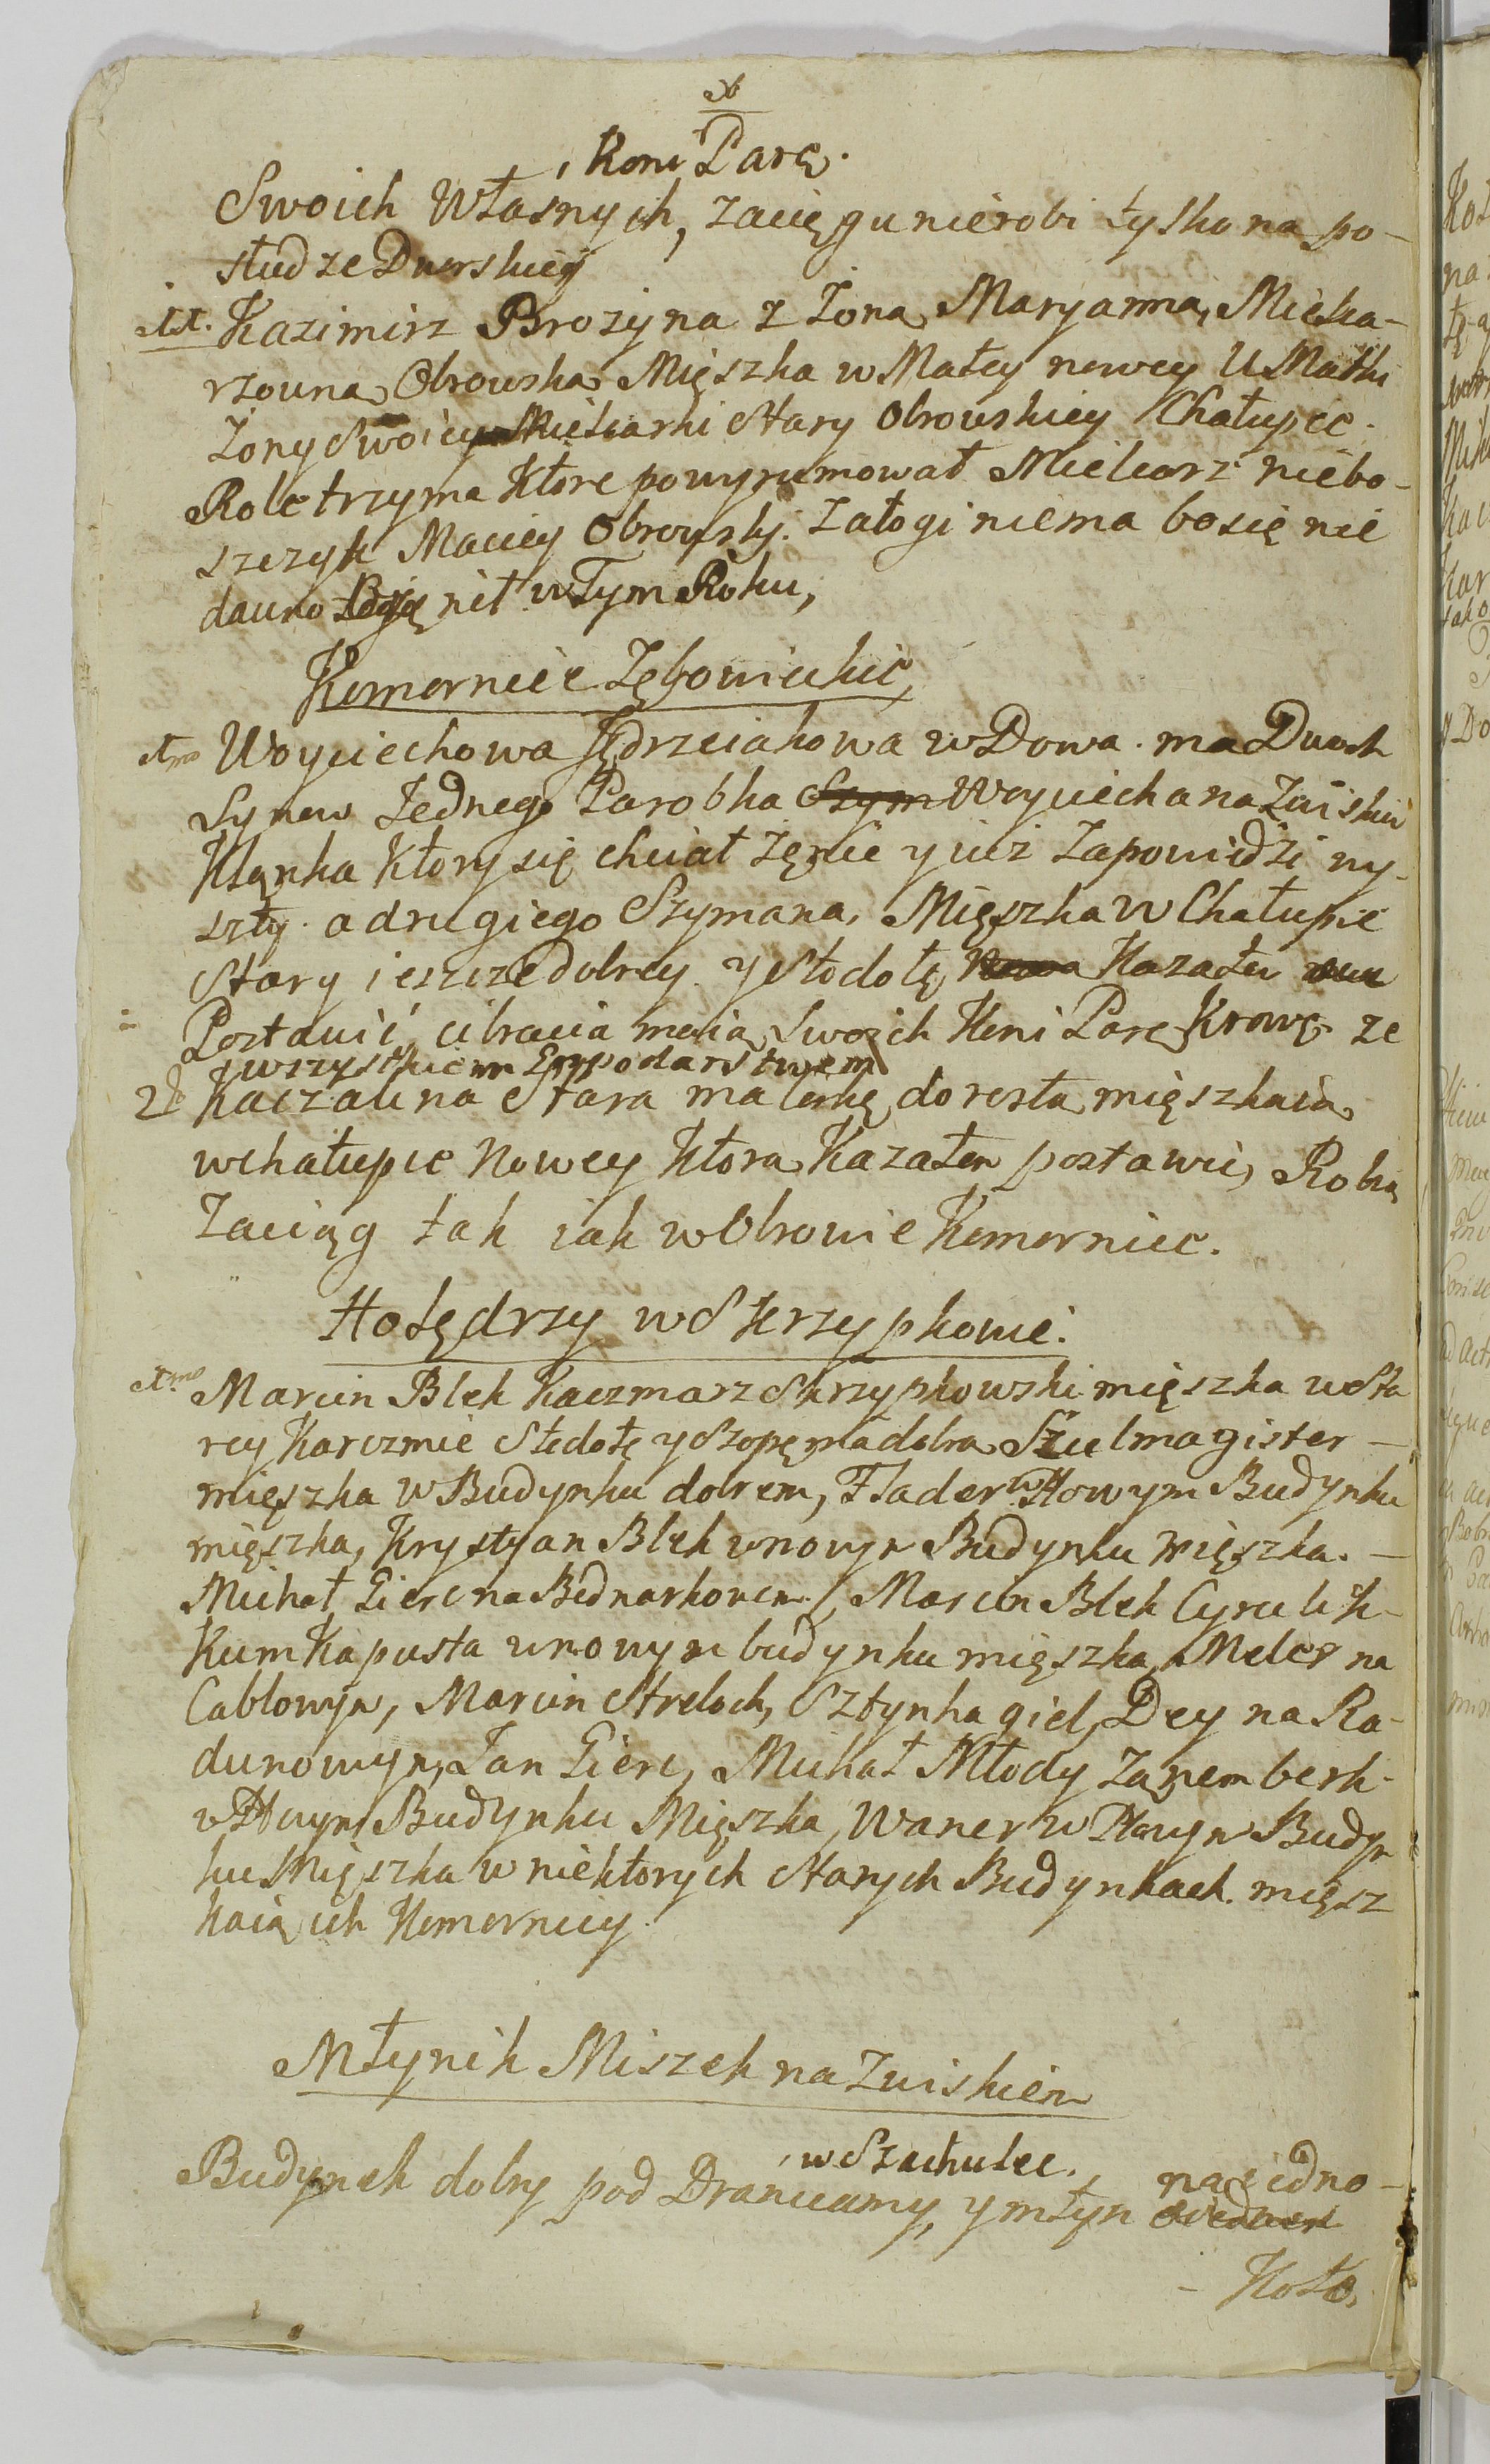 Koni Parę.
Swoich Własnych, Zacięgu nierobi tylko na po-
słudze Dworskiey
Kazimirz Brożyna z Żoną Maryanną, Mielca-
rzowną Obrowską Mięszka w Małey nowey U Matki
Żony Swoiey Mielcarki Stary Obrowskiey Chałupce.
Role trzyma Które powyrumował Mielcarz niebo-
szczyk Maciey Obrowski. Załogi niema bo się nie
dawno w Tym Roku,
Komornice Zębowieckie
Woyciechowa Jędrzeiakowa wDowa. ma Dwoch
Synow Jednego Parobka Szym Woyciecha na Zwiskiu
Klęnka Ktory się chciał Zęnic y iuż Zapowidzi wy-
szły. a drugiego Szymana, Mięszka w Chałupie
Stary ieszcze dobrey. y Stodołę Kazałem
Postawić, ci bracia maią Swoich Koni Parę Krowę ze
wszystkiem Gospodarstwem
2do Kaczalina Stara ma corkę dorosłą mięszkaią
w chałupie Nowey Którą Kazałem postawić, Robią
Zaciąg tak iak w Obrowie Komornice.
Holędrzy w Skrzypkowie.
Marcin Blek Kaczmarz Skrzypkowski mięszka w Sta
rey Karczmie Stodołę y Szopę ma dobrą Szulmagister -
mięszka w Budynku dobrem, Flader w Nowym Budynku
mięszka, Krystyan Blek w nowym Budynku mięszka. -
Michał Gierc na Bednarkowem, Marcin Blek Cyrulik -
Kum Kapusta w nowym budynku mięszka, Meler na
Cablowym, Marcin Streloch, Sztynhagiel, Dey na Ra-
dunowym, Jan Gierc, Michał Młody Zaremberk -
w Nowym Budynku Mięszka, Waner w Nowym Budyn
ku Mięszka w niektorych Starych Budynkach. mięsz
kaią ich Komornicy.
Młynik Miszek na Zwiskiem
w Szachulec.
Budynek dobry pod Dranicamy, y młyn na iedno -
- Koło,